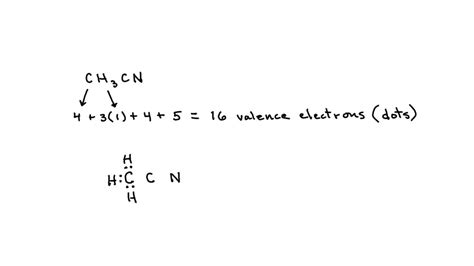 CH₃CN
4 + 3(1) + 4 + 5 = 16 valence electrons (dots)
H
H:C C N
H